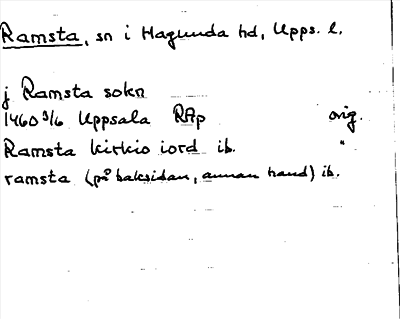 Ramsta, sn i Hagunda hd, Upps. l.
j Ramsta sokn
1460 3/6 Uppsala RAp orig.
Ramsta kirkio iord ib. "
ramsta (på baksidan, annan hand) ib.